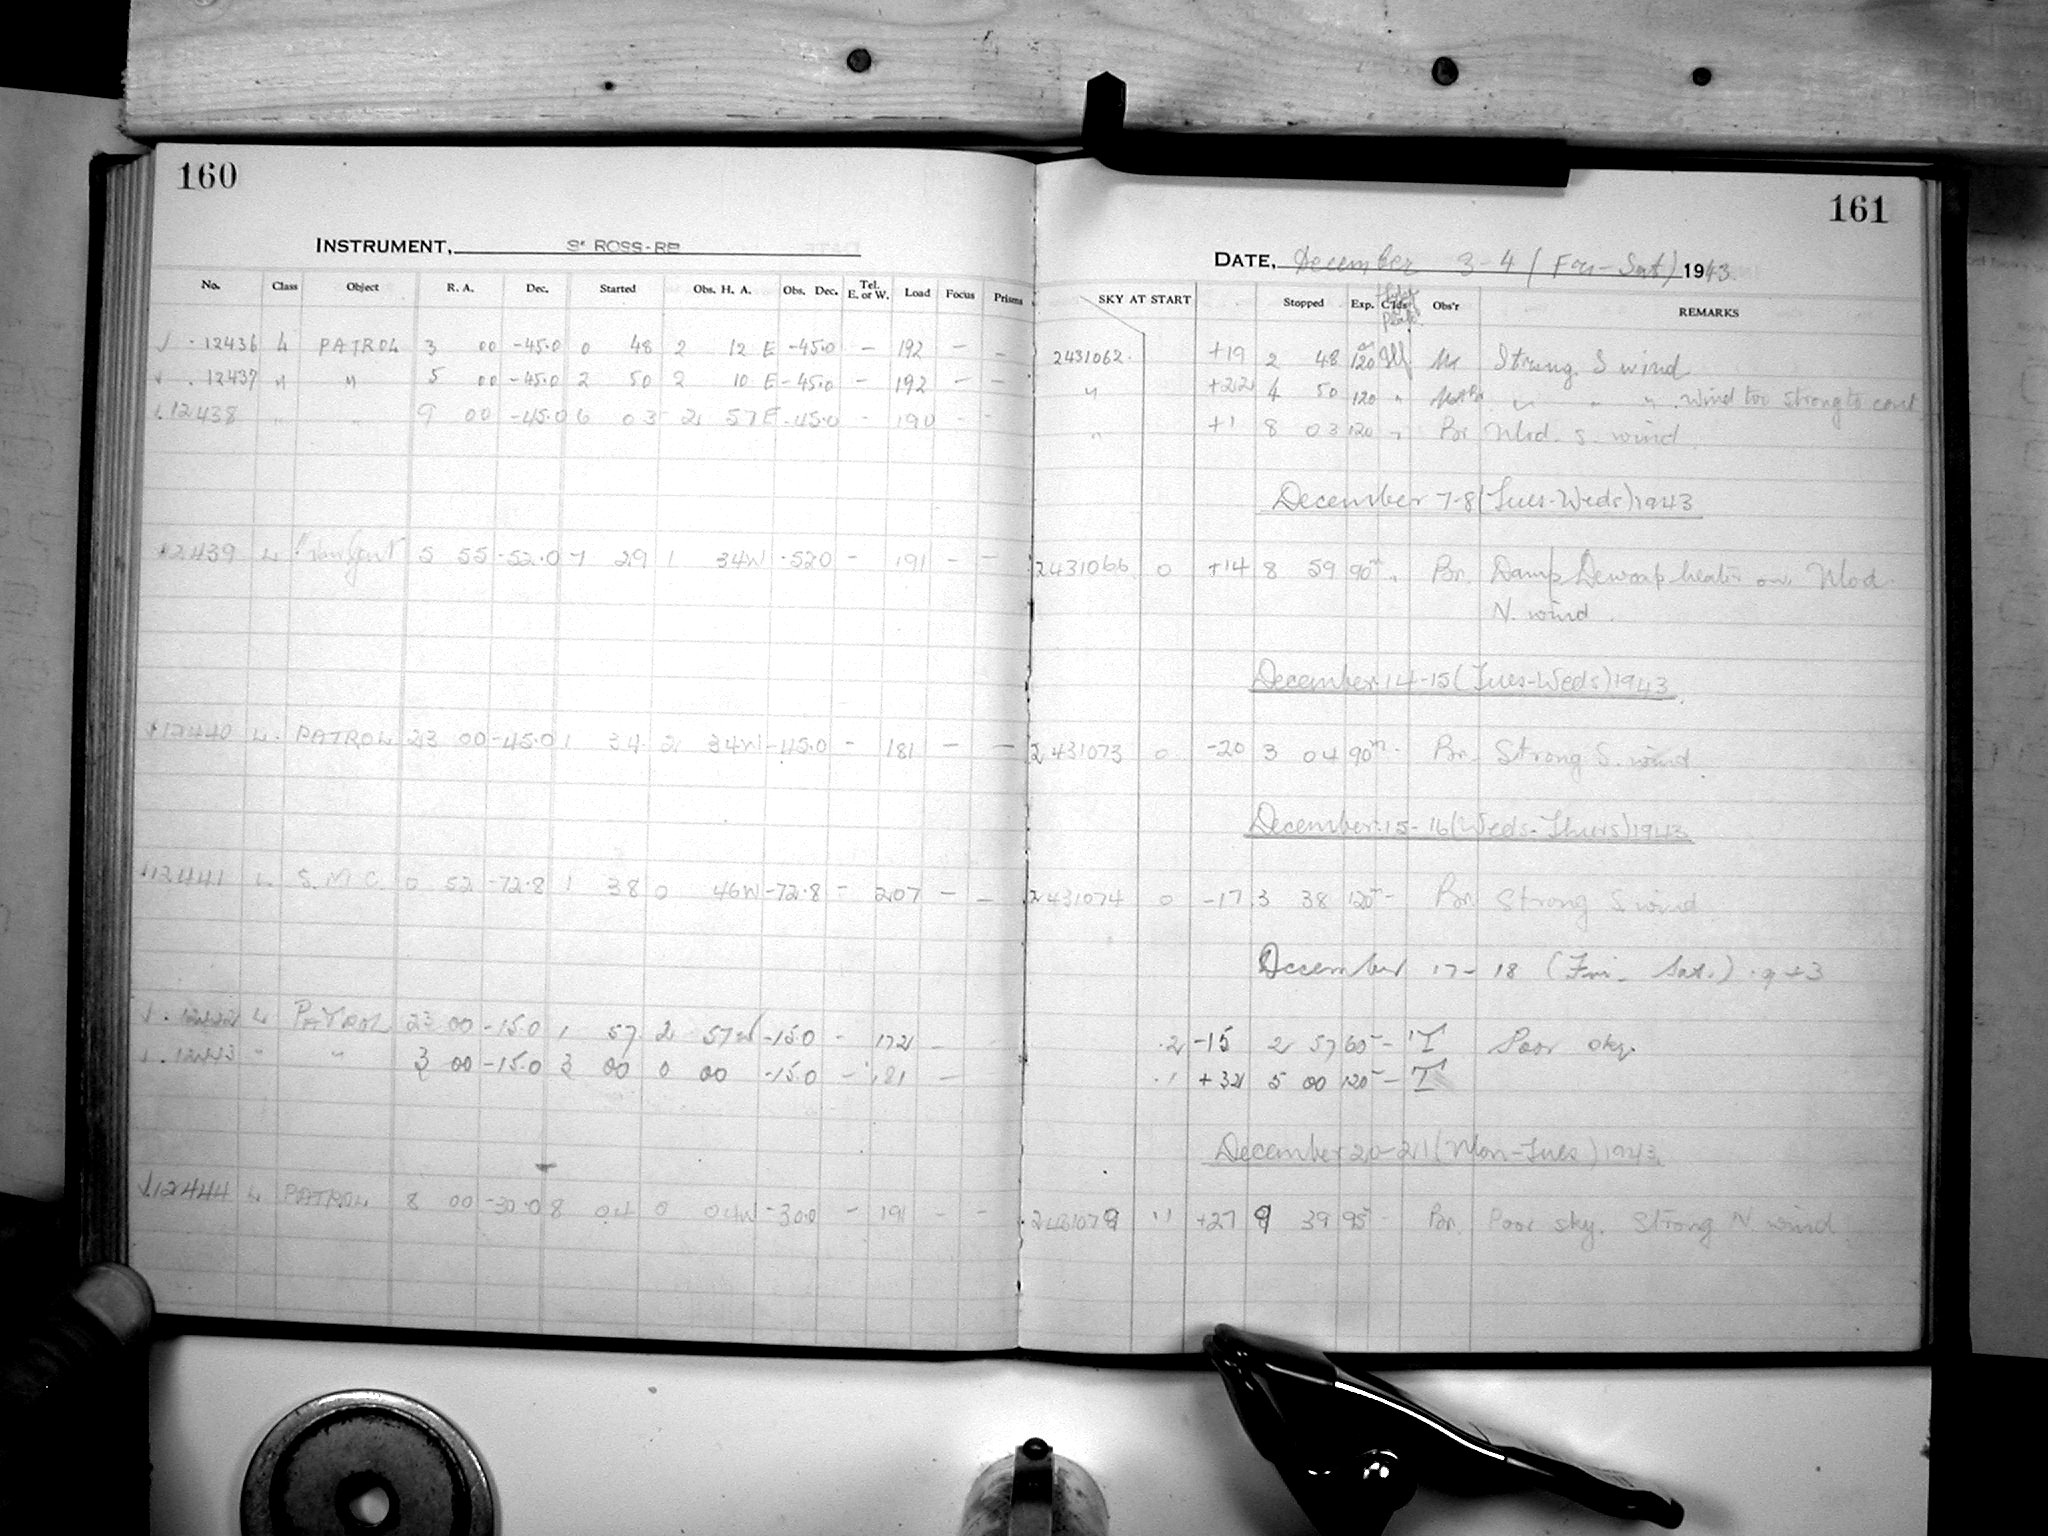 160
INSTRUMENT, 3" ROSS-RB
No. Class Object R. A. Dec. Started Obs. H. A. Obs. Dec. Tel. E. or W. Load Focus Prisms
12436 L PATROL 3 00 -45.0 0 48 2 12 E -45.0 - 192 - -
12437 " " 5 00 -45.0 2 50 2 10 E -45.0 - 192 - -
12438 " " 9 00 -45.0 6 03 2 57 E -45.0 - 190 - -
12439 L 5 55 -52.0 7 29 1 34W -52.0 - 191 - -
12440 L. PATROL 23 00 -45.0 1 34 2 34W -45.0 - 181 - -
12441 L S.M.C. 0 52 -72.8 1 38 0 46W -72.8 - 207 - -
12442 L PATROL 23 00 -15.0 1 57 2 57W -15.0 - 172 -
12443 " " 3 00 -15.0 3 00 0 00 -15.0 - 181 -
12444 L PATROL 8 00 -30.0 8 04 0 04W -30.0 - 191 - -
161
DATE, December 3-4 (Fri-Sat) 1943
SKY AT START Stopped Exp. C'lds Obs'r REMARKS
2431062 +19 2 48 120 M Strong S wind
" +22 4 50 120 " " " " wind too strong to cont
" +1 8 03 120 " Br Mod. S. wind
December 7-8 (Tues-Weds) 1943
2431066 0 +14 8 59 90m " Br. Damp Dewcap heater on. Mod.
N. wind.
December 14-15 (Tues-Weds) 1943
2431073 0 -20 3 04 90m - Br. Strong S. wind.
December 15-16 (Weds-Thurs) 1943
2431074 0 -17 3 38 120m - Br. Strong S wind.
December 17-18 (Fri-Sat.) 1943
.2 -15 2 57 60 - T Poor sky.
.1 +32 5 00 120 - T
December 20-21 (Mon-Tues) 1943
2431079 11 +27 9 39 95 - Br. Poor sky. Strong N. wind